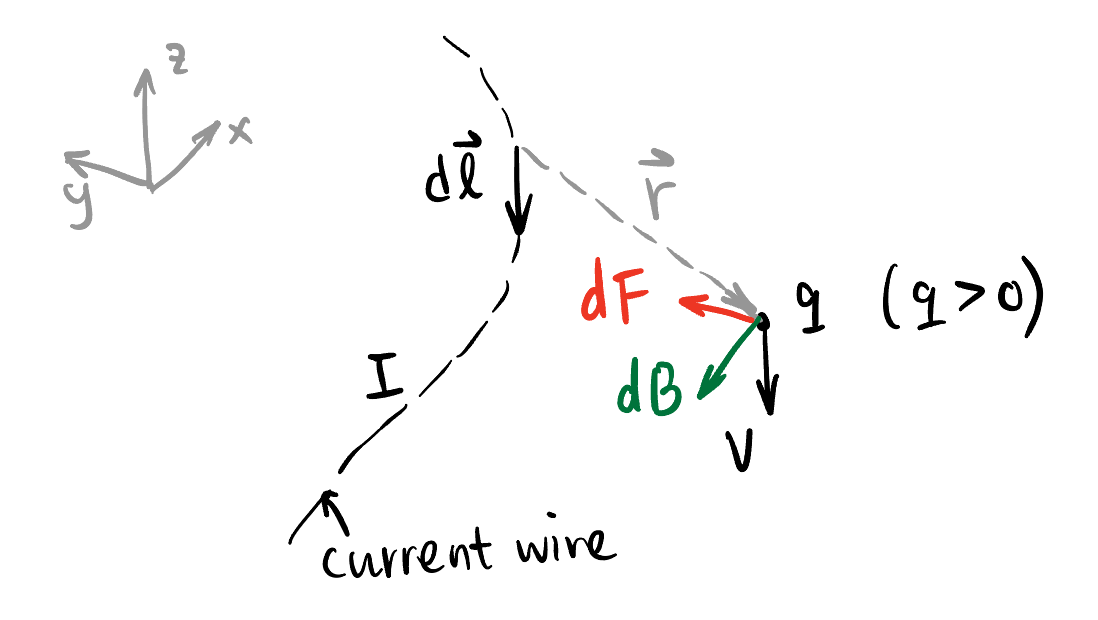 z
x
y
dl⃗
r⃗
dF
q (q>0)
dB
I
V
current wire